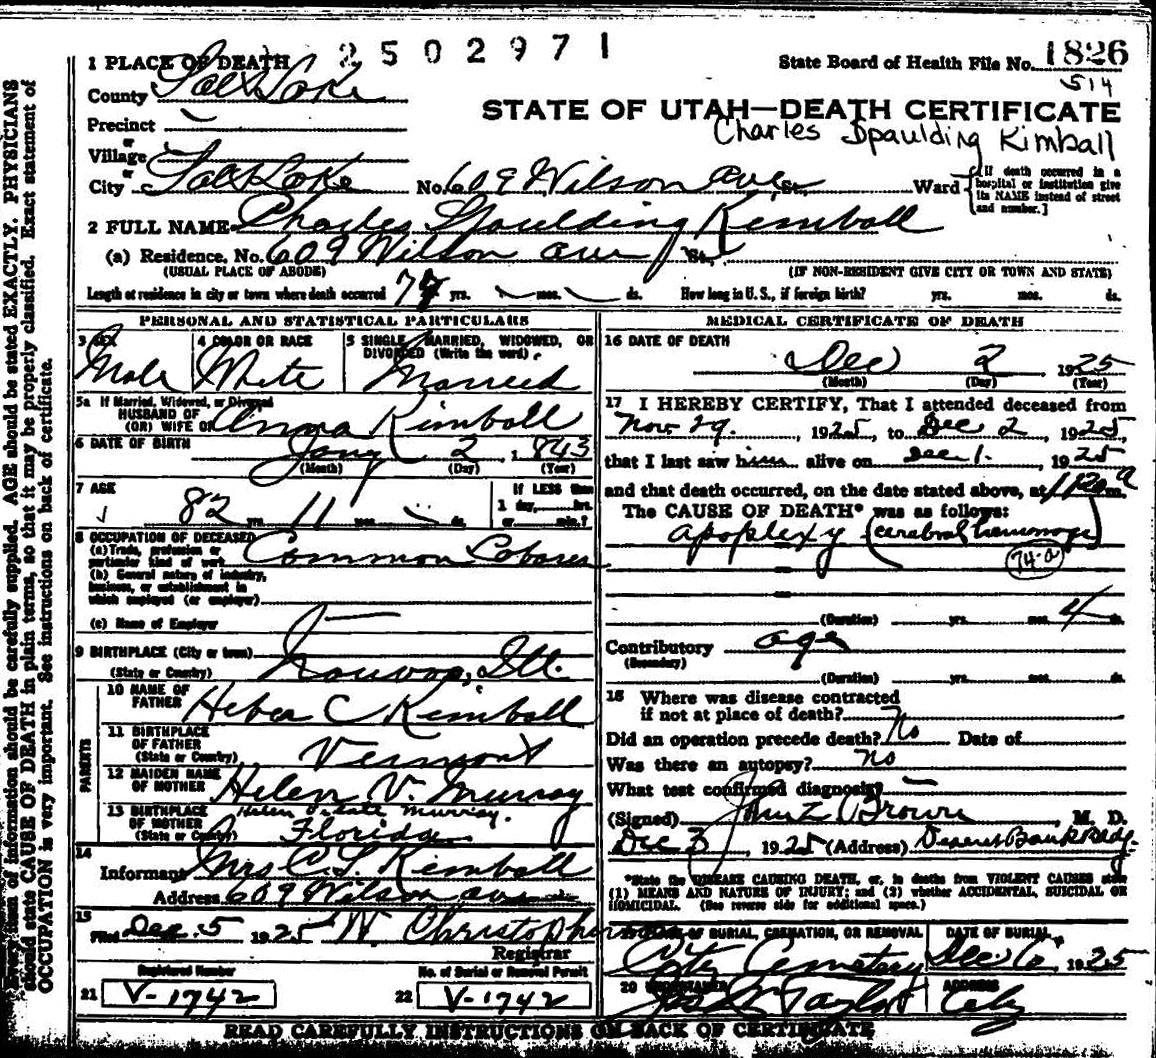 2502971
1 PLACE OF DEATH
State Board of Health File No. 1826
514
County Salt Lake
STATE OF UTAH—DEATH CERTIFICATE
Precinct
Charles Spaulding Kimball
or
Village
or
City Salt Lake No. 609 Wilson ave St. Ward
[If death occurred in a hospital or institution give its NAME instead of street and number.]
2 FULL NAME Charles Spaulding Kimball
(a) Residence, No. 609 Wilson ave St.
(USUAL PLACE OF ABODE) (IF NON-RESIDENT GIVE CITY OR TOWN AND STATE)
Length of residence in city or town where death occurred 77 yrs. mos. ds. How long in U. S., if foreign birth? yrs. mos. ds.
PERSONAL AND STATISTICAL PARTICULARS
3 SEX 4 COLOR OR RACE 5 SINGLE, MARRIED, WIDOWED, OR DIVORCED (Write the word)
Male White Married
5a If Married, Widowed, or Divorced
HUSBAND OF
(OR) WIFE OF Anna Kimball
6 DATE OF BIRTH Jany 2 1843
(Month) (Day) (Year)
7 AGE If LESS than
82 yrs. 11 mos. ds. 1 day, hrs.
or min.?
8 OCCUPATION OF DECEASED
(a) Trade, profession or
particular kind of work Common Laborer
(b) General nature of industry,
business, or establishment in
which employed (or employer)
(c) Name of Employer
9 BIRTHPLACE (City or town)
(State or Country) Nauvoo, Ill.
PARENTS
10 NAME OF
FATHER Heber C Kimball
11 BIRTHPLACE
OF FATHER
(State or Country) Vermont
12 MAIDEN NAME
OF MOTHER Helen V. Murray
13 BIRTHPLACE
OF MOTHER
(State or Country) Florida
14
Informant Mrs C. S. Kimball
Address 609 Wilson ave
15
Filed Dec. 5 1925 W Christopherson
Registrar
Registered Number No. of Burial or Removal Permit
21 V-1742 22 V-1742
MEDICAL CERTIFICATE OF DEATH
16 DATE OF DEATH
Dec 2 1925
(Month) (Day) (Year)
17 I HEREBY CERTIFY, That I attended deceased from
Nov 29. , 1925, to Dec 2 , 1925,
that I last saw him alive on Dec 1. , 1925
and that death occurred, on the date stated above, at m.
The CAUSE OF DEATH* was as follows:
apoplexy (cerebral hemorrage)
74-a
(Duration) yrs. mos. 4 ds.
Contributory age
(Secondary)
(Duration) yrs. mos. ds.
18 Where was disease contracted
if not at place of death?
Did an operation precede death? No Date of
Was there an autopsy? no
What test confirmed diagnosis?
(Signed) John Z Brown , M. D.
Dec 3 , 1925 (Address) Deseret Bank Bldg.
*State the DISEASE CAUSING DEATH, or, in deaths from VIOLENT CAUSES state
(1) MEANS AND NATURE OF INJURY; and (2) whether ACCIDENTAL, SUICIDAL OR
HOMICIDAL. (See reverse side for additional space.)
19 PLACE OF BURIAL, CREMATION, OR REMOVAL DATE OF BURIAL
City Cemetery Dec 6, 1925
20 UNDERTAKER ADDRESS
Jos W Taylor City
READ CAREFULLY INSTRUCTIONS ON BACK OF CERTIFICATE
Every item of information should be carefully supplied. AGE should be stated EXACTLY. PHYSICIANS
should state CAUSE OF DEATH in plain terms, so that it may be properly classified. Exact statement of
OCCUPATION is very important. See instructions on back of certificate.